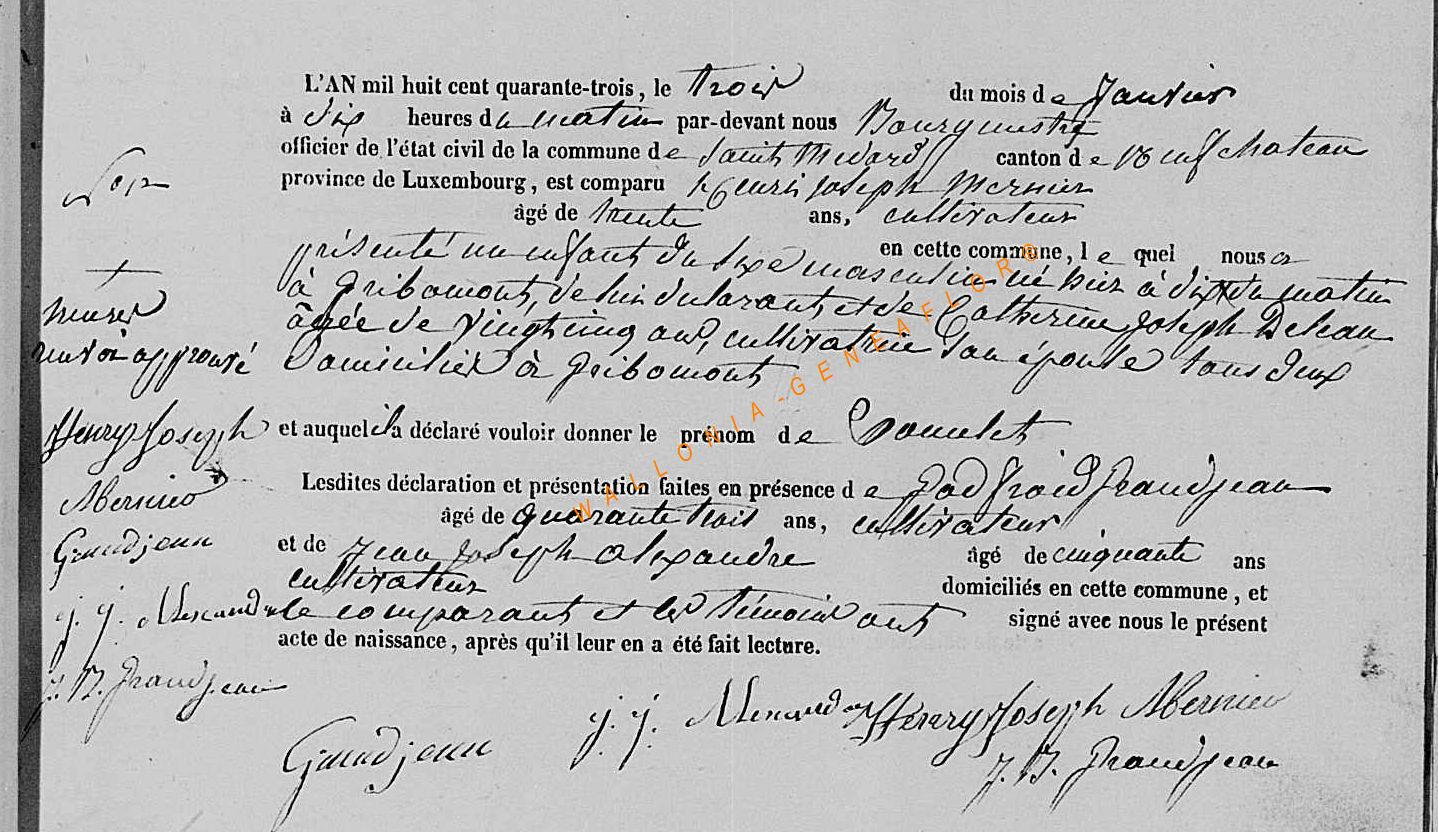 L'AN mil huit cent quarante-trois, le trois du mois de Janvier
à dix heures du matin par-devant nous Bourgmestre
officier de l'état civil de la commune de Saint Medard canton de Neufchateau
province de Luxembourg, est comparu henri joseph Mernier
âgé de trente ans, cultivateur
en cette commune, lequel nous a
présenté un enfant du sexe masculin né hier à dix + du matin
à Gribomont, de lui déclarant et de Catherine Joseph
âgée de vingt cinq ans, cultivatrice son épouse tous deux
Domiciliés à Gribomont
et auquel il a déclaré vouloir donner le prénom de
Lesdites déclaration et présentation faites en présence de Godfroid Grandjean
âgé de quarante trois ans, cultivateur
et de Jean joseph alexandre âgé de cinquante ans
cultivateur domiciliés en cette commune, et
le comparant et les témoins ont signé avec nous le présent
acte de naissance, après qu'il leur en a été fait lecture.
+
heures
renvoi approuvé
Henry Joseph
Mernier
Grandjean
j. j. Alexandre
J. B. Grandjean
j. j. Alexandre Henry Joseph Mernier
Grandjean J. B. Grandjean
WALLONIA-GENEAFLOR®